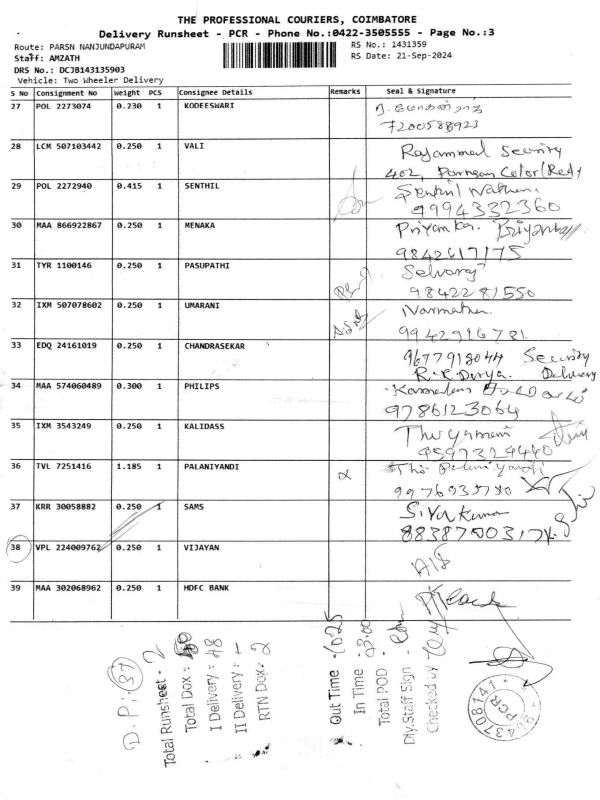 THE PROFESSIONAL COURIERS, COIMBATORE
Delivery Runsheet - PCR - Phone No.:0422-3505555 - Page No.:3
Route: PARSN NANJUNDAPURAM
RS No.: 1431359
Staff: AMZATH
RS Date: 21-Sep-2024
DRS No.: DCJB143135903
Vehicle: Two Wheeler Delivery
S No Consignment No Weight PCS Consignee Details Remarks Seal & Signature
27 POL 2273074 0.230 1 KODEESWARI
7200588923
28 LCM 507103442 0.250 1 VALI Rajammal Security
402, Parngan Color (Red)
29 POL 2272940 0.415 1 SENTHIL Senthil Nathan.
9994332360
30 MAA 866922867 0.250 1 MENAKA Priyanka. Priyanka
9842617175
31 TYR 1100146 0.250 1 PASUPATHI Selvaraj
9842281550
32 IXM 507078602 0.250 1 UMARANI Narmatha.
9942916781
33 EDQ 24161019 0.250 1 CHANDRASEKAR 9677918044 Security
Delivery
34 MAA 574060489 0.300 1 PHILIPS
9786123064
35 IXM 3543249 0.250 1 KALIDASS
9597329440
36 TVL 7251416 1.185 1 PALANIYANDI
9976935780
37 KRR 30058882 0.250 1 SAMS Sivakumar
38 VPL 224009762 0.250 1 VIJAYAN
39 MAA 302068962 0.250 1 HDFC BANK
D.P: 37
Total Runsheet - 2
Total Dox = 50
I Delivery = 48
II Delivery = -
RTN Dox. 2
Out Time - 10:25
In Time - 3:00
Total POD -
Dly.Staff Sign -
Checked by
9843708141
PCR